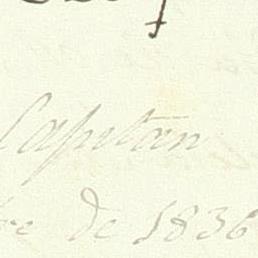 Capitan
de 1836